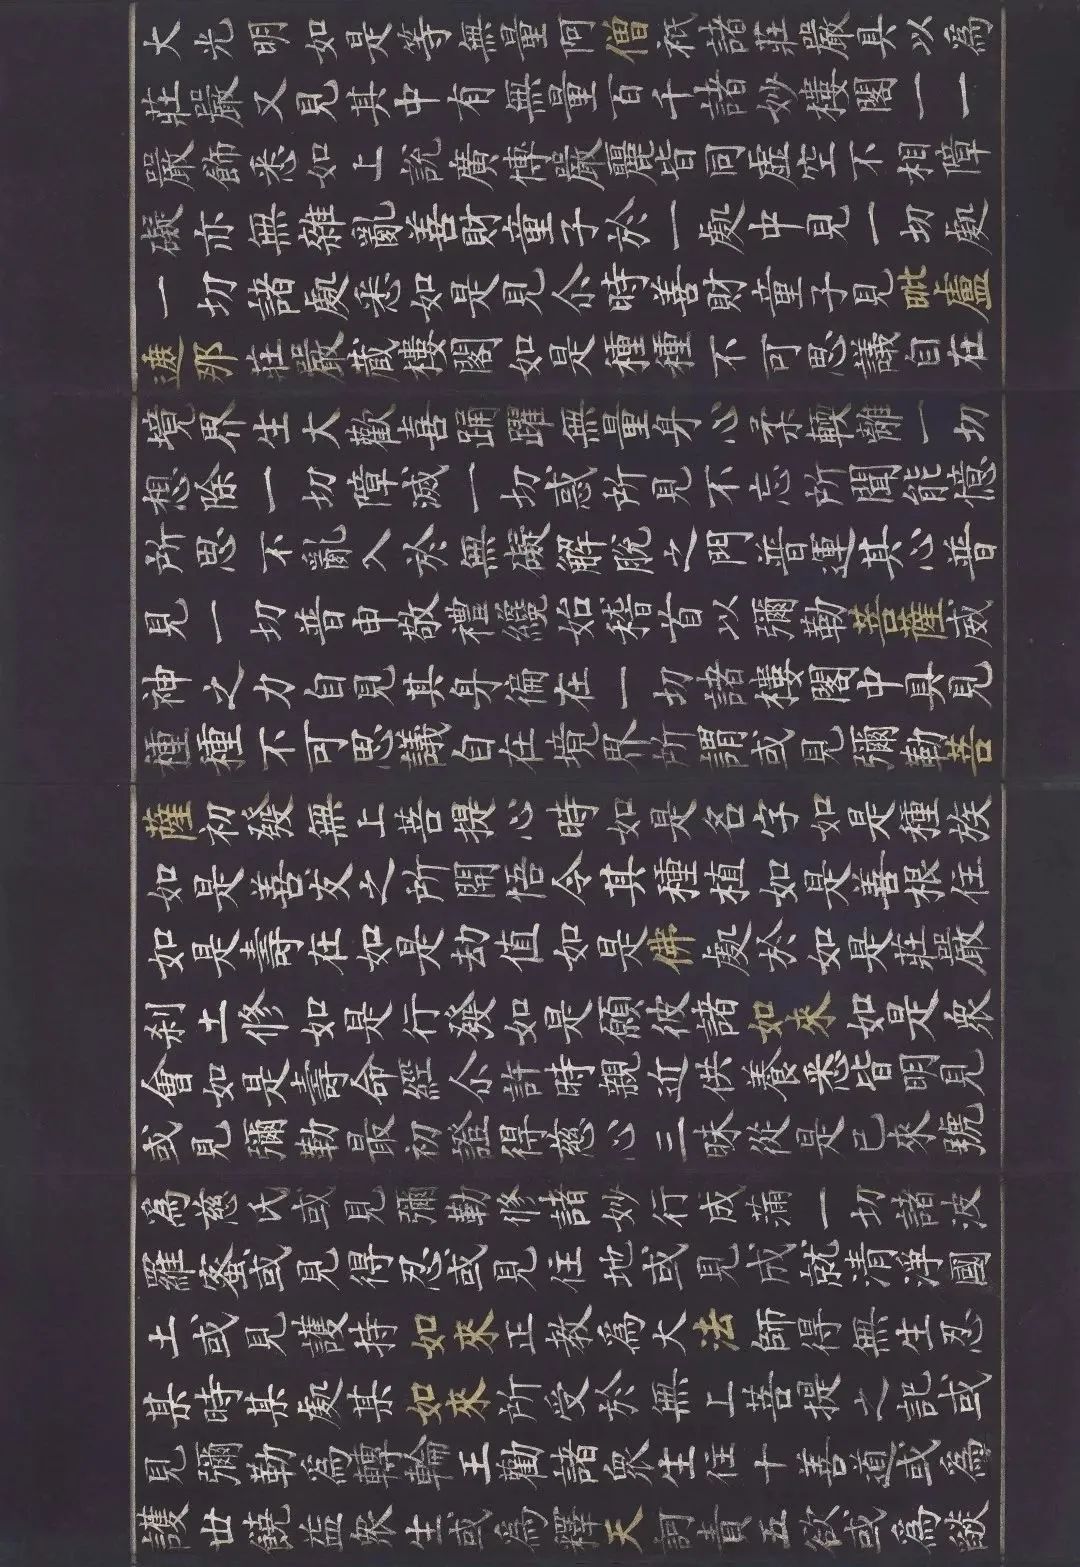 大光明如是等無量阿僧祇諸莊嚴具以爲
莊嚴又見其中有無量百千諸妙樓閣一一
嚴飾悉如上說廣博嚴麗皆同虛空不相障
礙亦無雜亂善財童子於一處中見一切處
一切諸處悉如是見尒時善財童子見毗盧
遮那莊嚴藏樓閣如是種種不可思議自在
境界生大歡喜踊躍無量身心柔輭離一切
想除一切障滅一切惑所見不忘所聞能憶
所思不亂入於無礙解脫之門普運其心普
見一切普申敬禮纔始稽首以彌勒菩薩威
神之力自見其身徧在一切諸樓閣中具見
種種不可思議自在境界所謂或見彌勒菩
薩初發無上菩提心時如是名字如是種族
如是善友之所開悟令其種植如是善根住
如是壽在如是劫值如是佛處於如是莊嚴
刹土修如是行發如是願彼諸如來如是衆
會如是壽命經尒許時親近供養悉皆明見
或見彌勒最初證得慈心三昧從是已來號
爲慈氏或見彌勒修諸妙行成滿一切諸波
羅蜜或見得忍或見住地或見成就清淨國
土或見護持如來正教爲大法師得無生忍
某時某處某如來所受於無上菩提之記或
見彌勒爲轉輪王勸諸衆生住十善道或爲
護世饒益衆生或爲釋天訶責五欲或爲燄